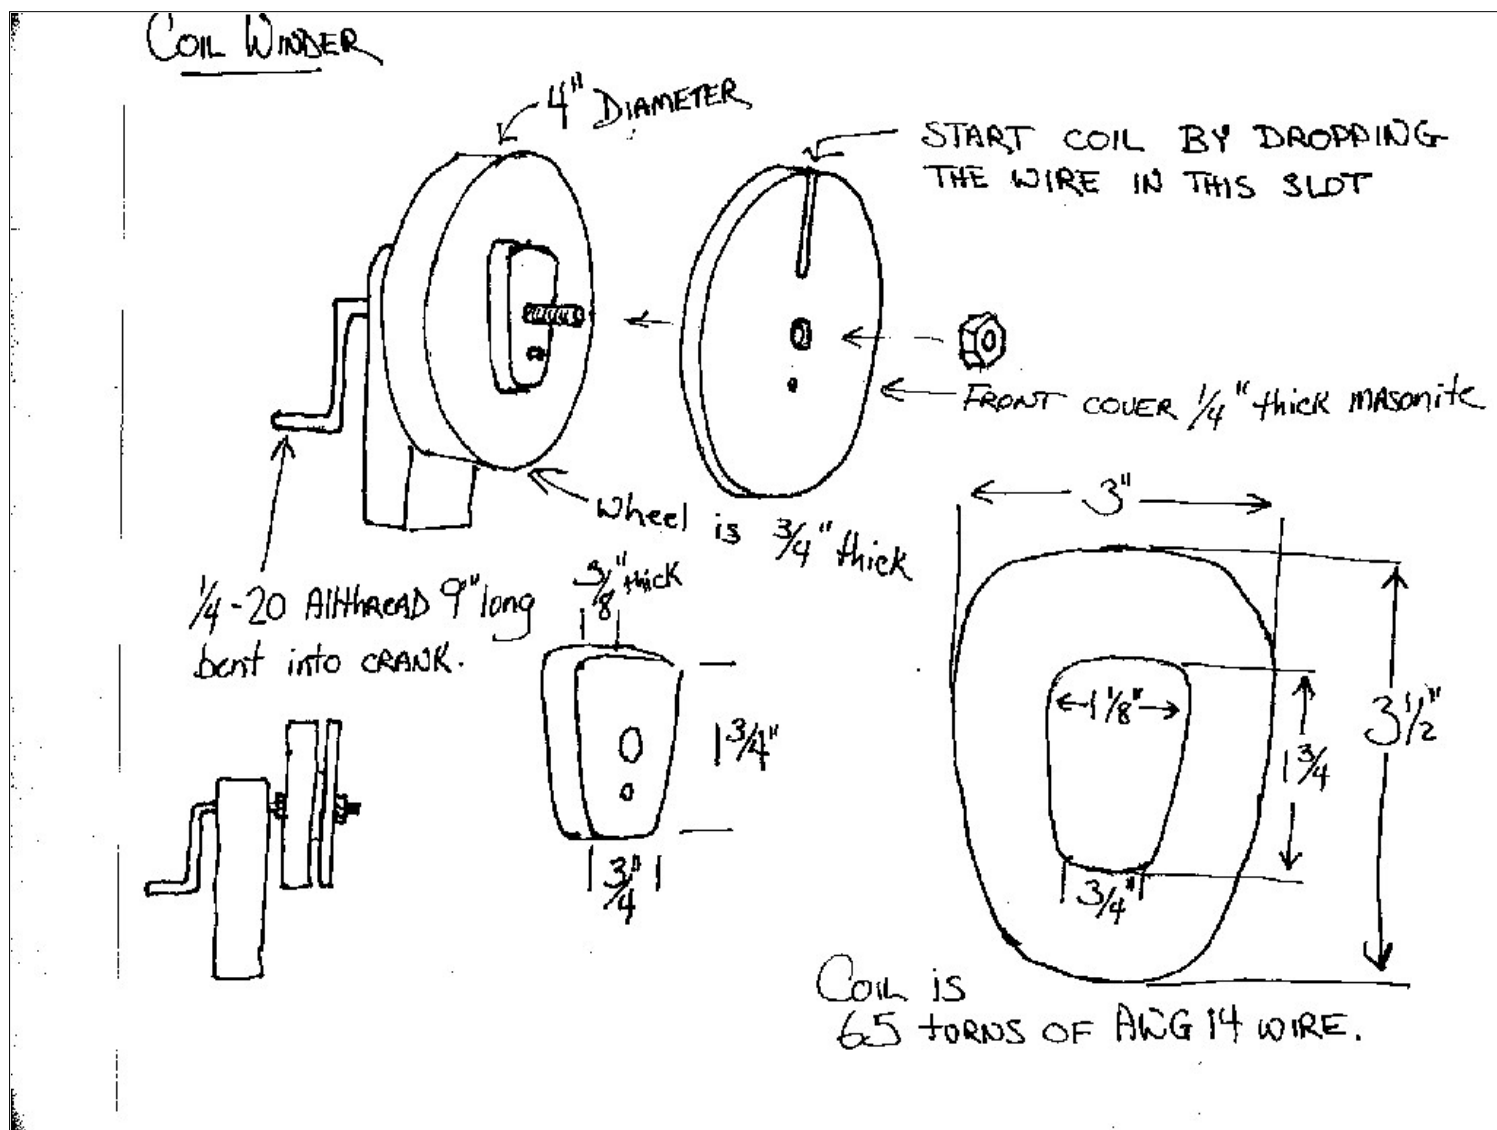 COIL WINDER
4" DIAMETER
START COIL BY DROPPING
THE WIRE IN THIS SLOT
FRONT COVER 1/4" thick MASONITE
Wheel is 3/4" thick
1/4-20 AllthREAD 9" long
bent into CRANK.
3/8" thick
1 3/4"
3/4"
3"
1 1/8"
3 1/2"
1 3/4
3/4"
COIL is
65 TURNS OF AWG 14 WIRE.